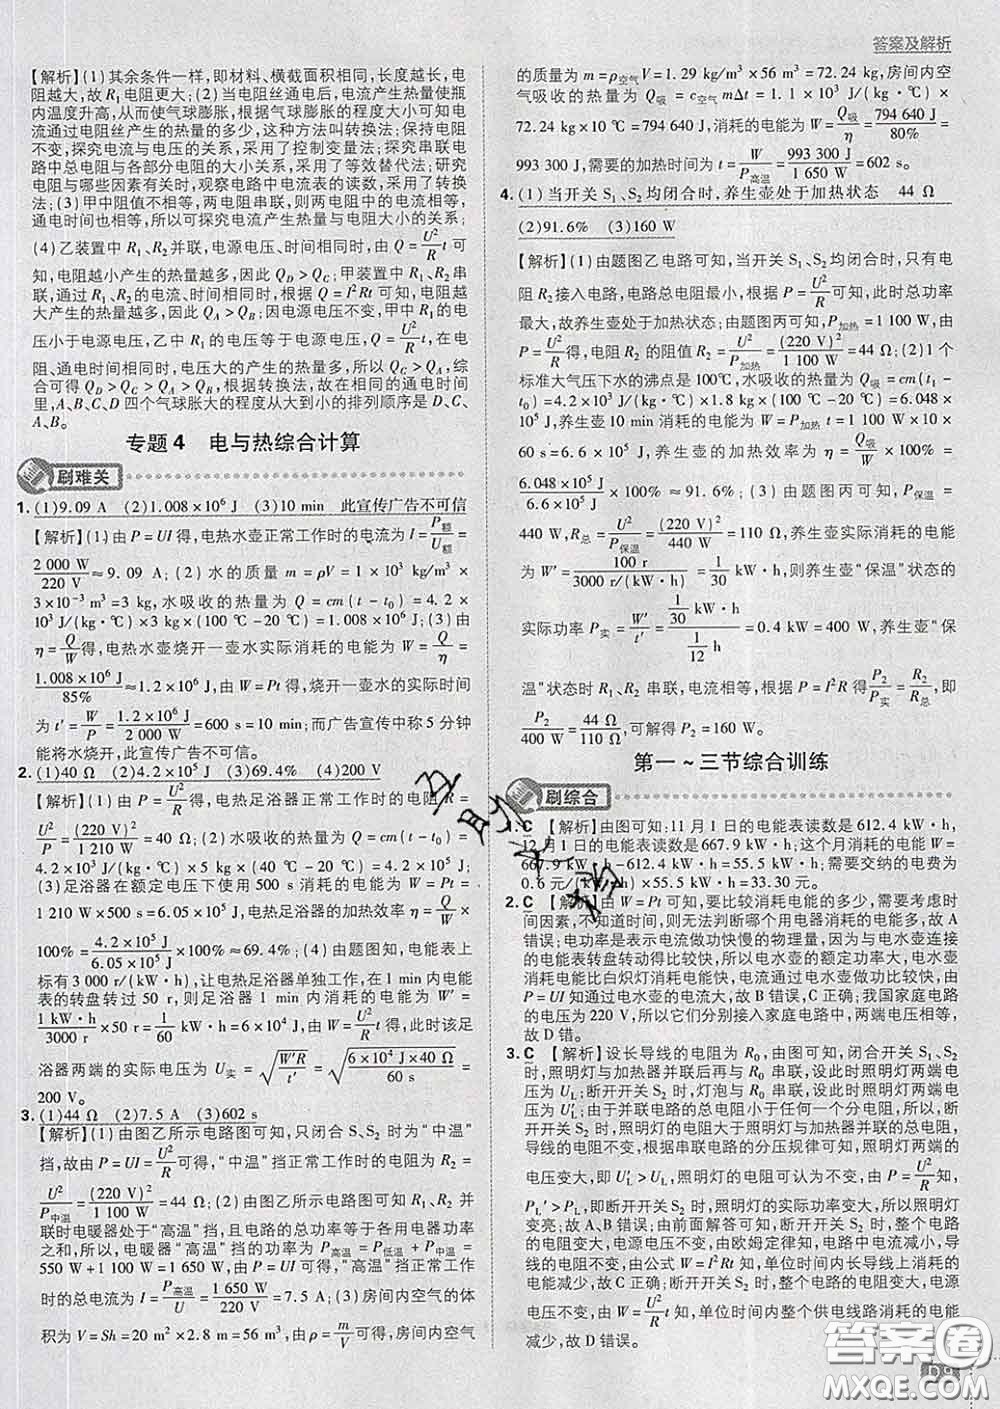 答案及解析
【解析】(1)其余条件一样,即材料、横截面积相同,长度越长,电
阻越大,故R₁电阻更大;(2)当电阻丝通电后,电流产生热量使瓶
内温度升高,从而使气球膨胀,根据气球膨胀的程度大小可知电
流通过电阻丝产生的热量的多少,这种方法叫转换法;保持电阻
不变,探究电流与电压的关系,采用了控制变量法;探究串联电
路中总电阻与各部分电阻的大小关系,采用了等效替代法;研究
电阻与哪些因素有关时,观察电路中电流表的读数,采用了转换
法;(3)甲中阻值不相等,两电阻串联,则两电阻中的电流相等,
通电时间也相等,所以可探究电流产生热量与电阻大小的关系;
(4)乙装置中R₁、R₂并联,电源电压、时间相同时,由Q=U²/R t可
知,电阻越小产生的热量越多,因此Q_D>Q_C;甲装置中R₁、R₂串
联,通过R₁、R₂的电流、时间相同时,根据Q=I²Rt可知,电阻越
大产生的热量越多,因此Q_A>Q_B;因电源电压不变,甲中R₁的
电压小于电源电压,乙中R₁的电压等于电源电压,由Q=U²/R t,在
电阻、通电时间相同时,电压大的产生的热量多,所以Q_C>Q_A,综
合可得Q_D>Q_C>Q_A>Q_B;根据转换法,故在相同的通电时间
里,A、B、C、D四个气球胀大的程度从大到小的排列顺序是D、C、
A、B。
专题4 电与热综合计算
刷难关
1. (1)9.09 A (2)1.008×10⁶ J (3)10 min 此宣传广告不可信
【解析】(1)由P=UI得,电热水壶正常工作时的电流为I=P额/U额=
2 000 W/220 V≈9.09 A;(2)水的质量m=ρV=1×10³ kg/m³
×3×10⁻³ m³=3 kg,水吸收的热量为Q=cm(t-t₀)=4.2×
10³ J/(kg·℃)×3 kg×(100 ℃-20 ℃)=1.008×10⁶ J;(3)由
η=Q/W得,电热水壶烧开一壶水实际消耗的电能为W=Q/η=
1.008×10⁶ J/85%≈1.2×10⁶ J,由W=Pt得,烧开一壶水的实际时间
为t′=W/P=1.2×10⁶ J/2 000 W=600 s=10 min;而广告宣传中称5分钟
能将水烧开,此宣传广告不可信。
2. (1)40 Ω (2)4.2×10⁵ J (3)69.4% (4)200 V
【解析】(1)由P=U²/R得,电热足浴器正常工作时的电阻R=
U²/P=(220 V)²/1 210 W=40 Ω;(2)水吸收的热量Q=cm(t-t₀)=
4.2×10³ J/(kg·℃)×5 kg×(40 ℃-20 ℃)=4.2×10⁵ J;
(3)足浴器在额定电压下使用500 s消耗的电能W=Pt=
1 210 W×500 s=6.05×10⁵ J,足浴器的加热效率η=Q/W×
100%=4.2×10⁵ J/6.05×10⁵ J×100%≈69.4%;(4)由题图知,电能表上
标有3 000 r/(kW·h),让电热足浴器单独工作,在1 min内电能
表的转盘转过50 r,则足浴器1 min内消耗的电能W′=
1 kW·h/3000 r×50 r=1/60 kW·h=6×10⁴ J,由W=U²/R t得,此时该足
浴器两端的实际电压为U实=√(W′R/t′)=√(6×10⁴ J×40 Ω/60 s)=
200 V。
3. (1)44 Ω (2)7.5 A (3)602 s
【解析】(1)由图乙所示电路图可知,只闭合S、S₂时为“中温”
挡,故由P=UI=U²/R可得,“中温”挡正常工作时的电阻R₂=
U²/P中温=(220 V)²/1 100 W=44 Ω;(2)由图乙所示电路图可知R₁、R₂并
联时电暖器处于“高温”挡,且电路的总功率等于各用电器功率
之和,所以,电暖器“高温”挡的功率为P高温=P低温+P中温=
550 W+1 100 W=1 650 W,由P=UI可得,“高温”挡正常工作
时的总电流为I=P高温/U=1 650 W/220 V=7.5 A;(3)房间内空气的体
积为V=Sh=20 m²×2.8 m=56 m³,由ρ=m/V可得,房间内空气
的质量为m=ρ空气V=1.29 kg/m³×56 m³=72.24 kg,房间内空
气吸收的热量为Q吸=c空气mΔt=1.1×10³ J/(kg·℃)×
72.24 kg×10 ℃=794 640 J,消耗的电能为W=Q吸/η=794 640 J/80%=
993 300 J,需要的加热时间为t=W/P高温=993 300 J/1 650 W=602 s。
4. (1)当开关S₁、S₂均闭合时,养生壶处于加热状态 44 Ω
(2)91.6% (3)160 W
【解析】(1)由题图乙电路可知,当开关S₁、S₂均闭合时,只有电
阻R₂接入电路,电路总电阻最小,根据P=U²/R可知,此时总功率
最大,故养生壶处于加热状态;由题图丙可知,P加热=1 100 W,由
P=U²/R得,电阻R₂的阻值R₂=U²/P加热=(220 V)²/1 100 W=44 Ω;(2)1个
标准大气压下水的沸点是100℃,水吸收的热量为Q吸=cm(t₁-
t₀)=4.2×10³ J/(kg·℃)×1.8 kg×(100 ℃-20 ℃)=6.048×
10⁵ J,养生壶10 min消耗的电能为W=P加热t=1 100 W×10
×60 s=6.6×10⁵ J,养生壶的加热效率为η=Q吸/W×100%=
6.048×10⁵ J/6.6×10⁵ J×100%≈91.6%;(3)由题图丙可知,P保温=
440 W,R总=U²/P保温=(220 V)²/440 W=110 Ω,养生壶实际消耗的电能
为W′=100 r/3000 r/(kW·h)=1/30 kW·h,则养生壶“保温”状态的
实际功率P实=W′/t′=(1/30 kW·h)/(1/12 h)=0.4 kW=400 W,养生壶“保
温”状态时R₁、R₂串联,电流相等,根据P=I²R得P₂/P实=R₂/R总,即
P₂/400 W=44 Ω/110 Ω,可解得P₂=160 W。
第一~三节综合训练
刷综合
1. C 【解析】由图可知:11月1日的电能表读数是612.4 kW·h,
12月1日的电能表读数是667.9 kW·h;这个月消耗的电能W=
667.9 kW·h-612.4 kW·h=55.5 kW·h;需要交纳的电费为
0.6元/(kW·h)×55.5 kW·h=33.30元。
2. C 【解析】由W=Pt可知,要比较消耗电能的多少,需要考虑时
间因素,不知道时间,则无法判断哪个用电器消耗的电能多,故A
错误;电功率是表示电流做功快慢的物理量,因为与电水壶连接
的电能表转盘转动得比较快,所以电水壶的额定功率大,电水壶
消耗电能比白炽灯消耗电能快,电流通过电水壶做功比较快,由
P=UI知通过电水壶的电流大,故B错误,C正确;我国家庭电路
的电压为220 V,所以它们分别接入家庭电路中,两端电压相等,
故D错。
3. C 【解析】设长导线的电阻为R₀,由图可知,闭合开关S₁、S₂
时,照明灯与加热器并联后再与R₀串联,设此时照明灯两端电
压为U_L;断开开关S₂时,灯泡与R₀串联,设此时照明灯两端电
压为U_L′;由于并联电路的总电阻小于任何一个分电阻,所以,断
开开关S₂时,照明灯的电阻大于照明灯与加热器并联的总电阻,
导线的电阻不变,根据串联电路的分压规律可知,照明灯两端的
电压变大,即U_L′>U_L,照明灯的电阻可认为不变,由P=U²/R可知,
P_L′>P_L,即断开开关S₂时,照明灯的实际功率变大,所以照明灯
变亮;故A、B错误;由前面解答可知,断开开关S₂时,整个电路
的电阻变大,电源电压不变,由欧姆定律知,电路中电流减小,导
线的电阻不变,由公式W=I²Rt知,单位时间内长导线消耗的电
能减少,故C正确;断开开关S₂时,整个电路的电阻变大,电源
电压不变,由W=U²/R t知,单位时间内整个供电线路消耗的电能
减少,故D错误。
D9
答案圈
MXQE.COM